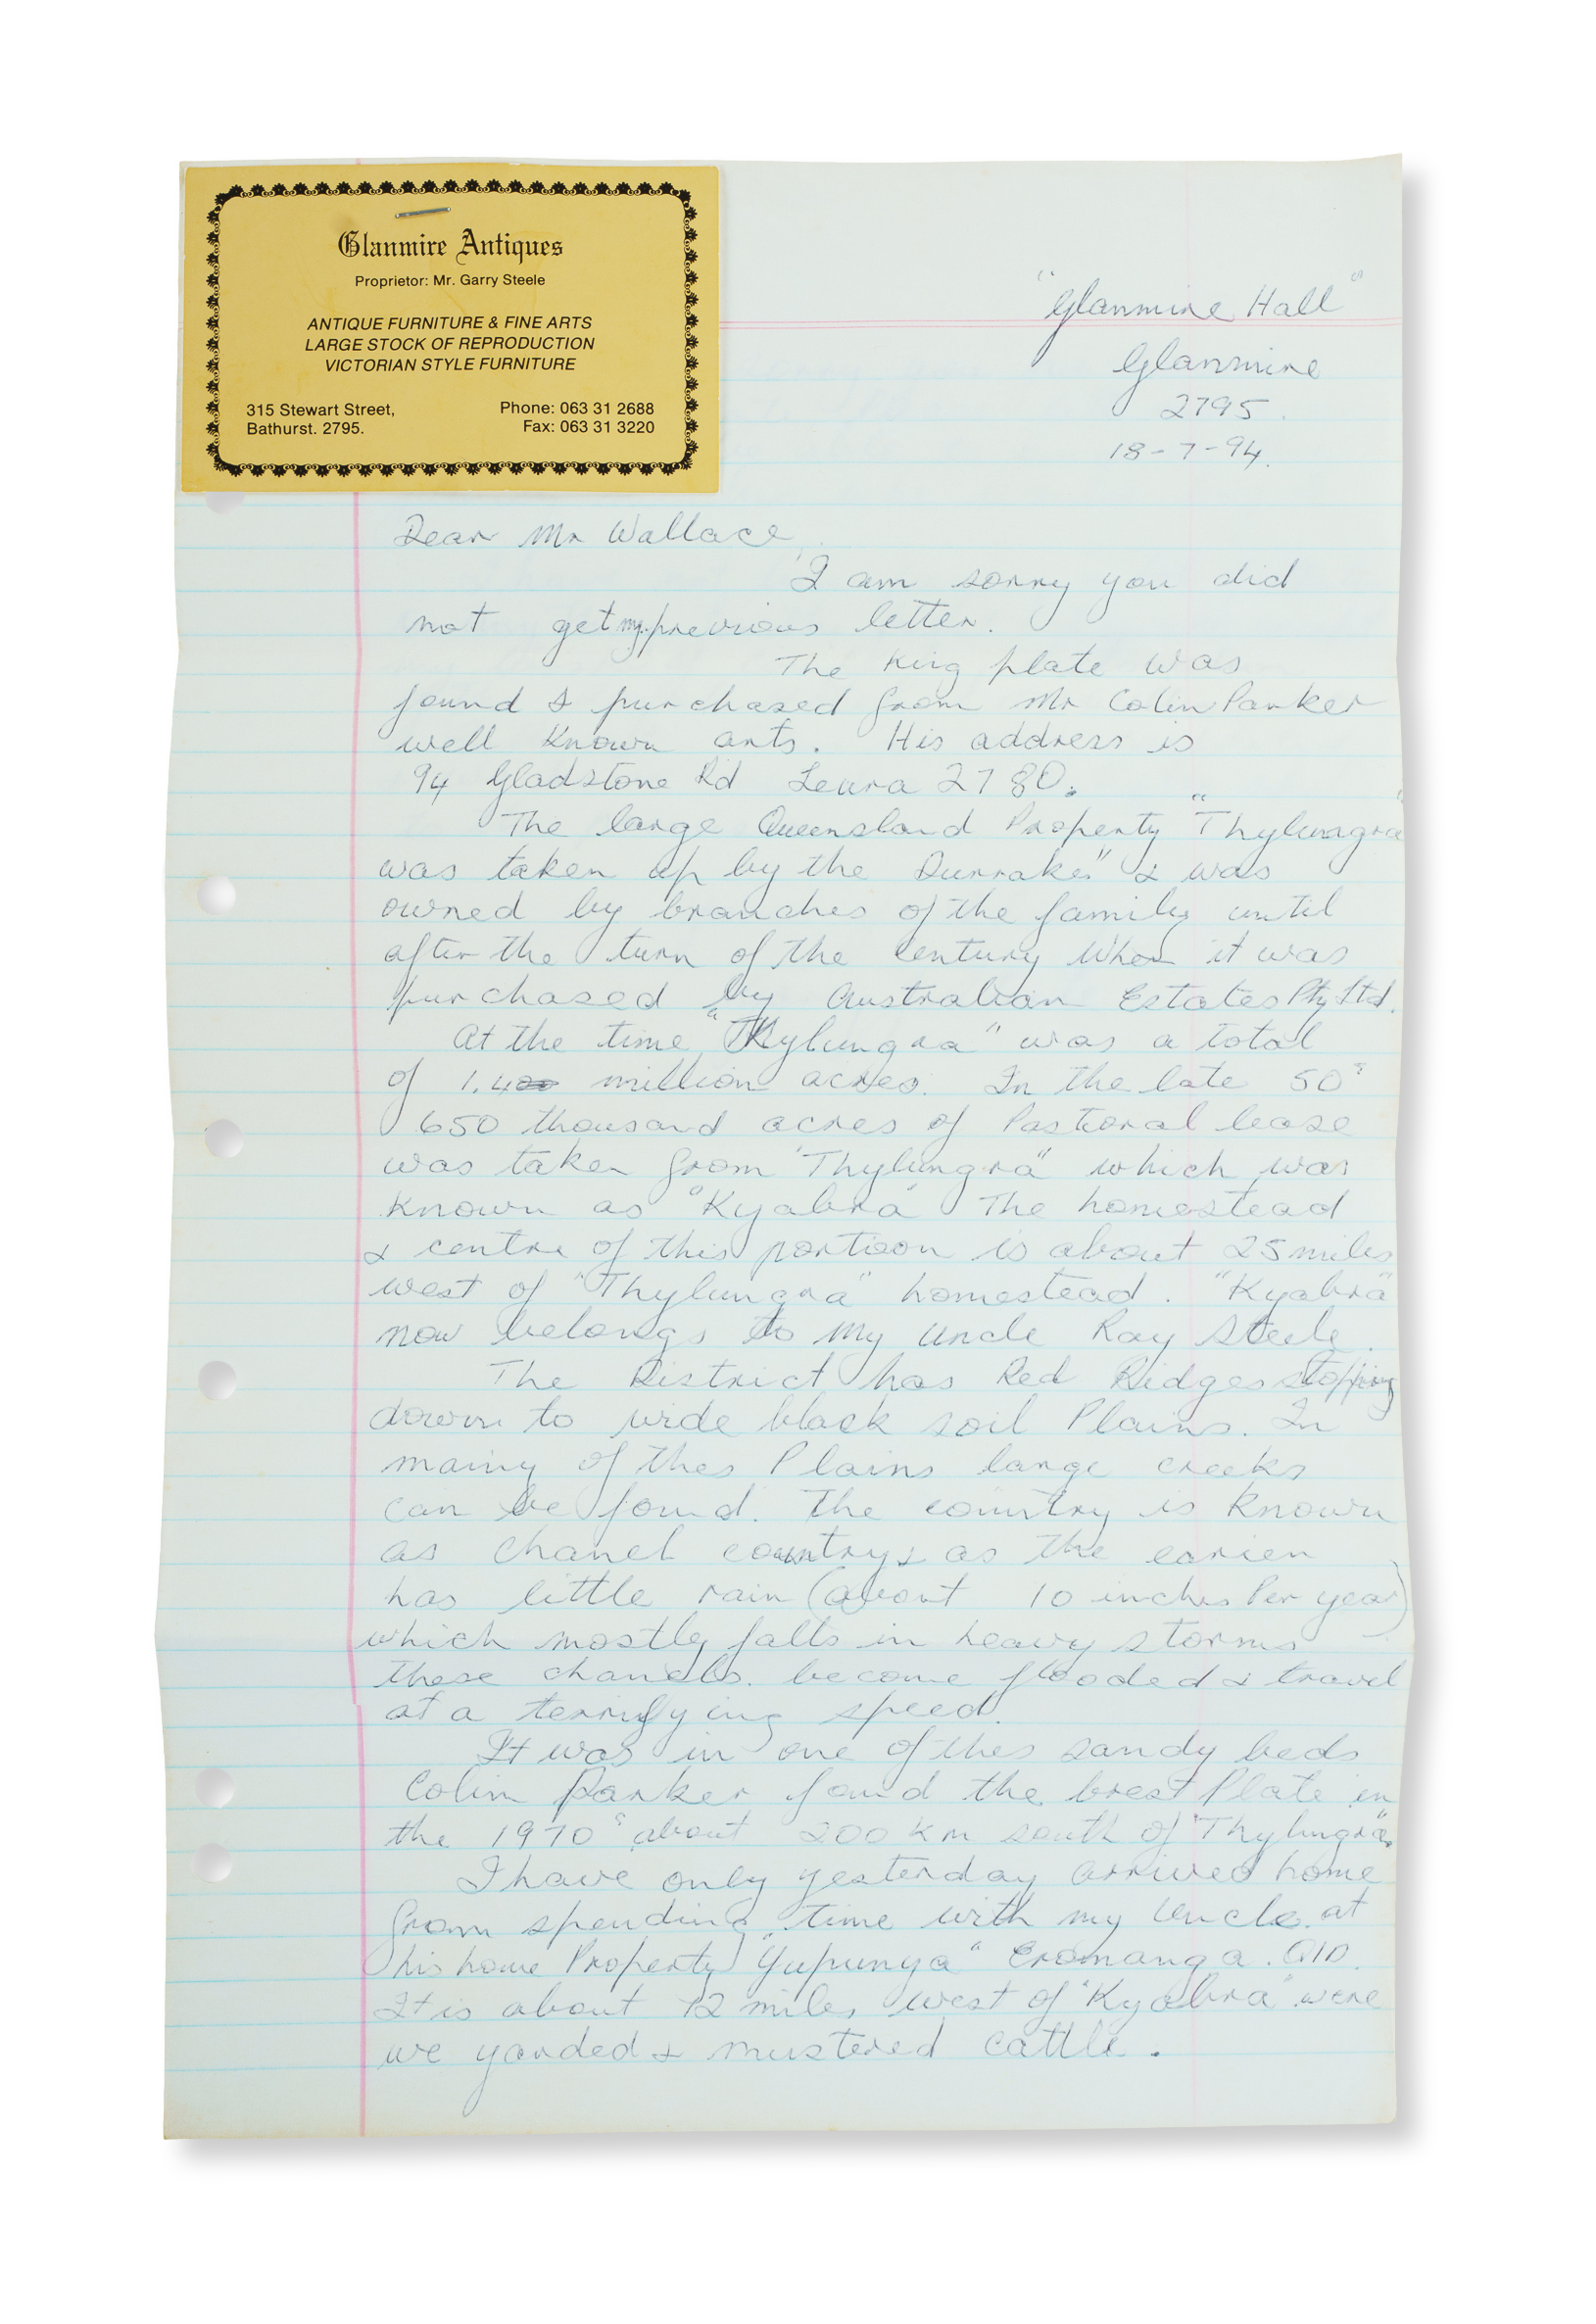 Glanmire Antiques
Proprietor: Mr. Garry Steele
ANTIQUE FURNITURE & FINE ARTS
LARGE STOCK OF REPRODUCTION
VICTORIAN STYLE FURNITURE
315 Stewart Street,
Bathurst. 2795.
Phone: 063 31 2688
Fax: 063 31 3220
"Glanmire Hall"
Glanmire
2795.
18-7-94.
Dear Mr Wallace,
I am sorry you did
not get my previous letter.
The King plate was
found & purchased from Mr Colin Parker
well known arts. His address is
94 Gladstone Rd Leura 2780.
The large Queensland Property "Thylungra"
was taken up by the Durraks" & was
owned by branches of the family until
after the turn of the century when it was
purchased by Australian Estates Pty Ltd.
At the time "Thylungra" was a total
of 1.4 million acres. In the late 50s
650 thousand acres of Pastoral lease
was taken from "Thylungra" which was
known as "Kyabra" The homestead
& centre of this portion is about 25 miles
west of "Thylungra" homestead. "Kyabra"
now belongs to my Uncle Ray Steele.
The District has Red Ridges slopping
down to wide black soil Plains. In
many of thes Plains large creeks
can be found. The country is known
as chanel country & as the
has little rain (about 10 inches Per year)
which mostly falls in heavy storms
these chanels. become flooded & travel
at a terrifying speed.
It was in one of thes sandy beds
Colin Parker found the brest Plate in
the 1970s about 200 km south of "Thylungra".
I have only yesterday arrived home
from spending time with my Uncle at
his home Property "Yupunya" Eromanga. QLD.
It is about 12 miles west of "Kyabra" were
we yarded & mustered cattle.